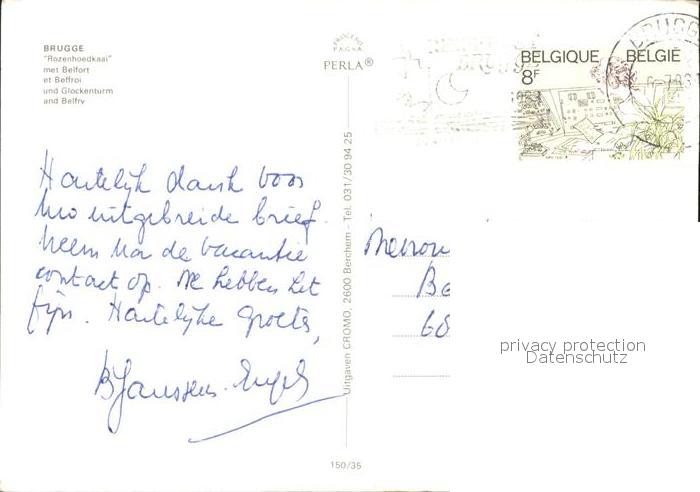 BRUGGE
"Rozenhoedkaai"
met Belfort
et Beffroi
und Glockenturm
and Belfry
PERLA®
BELGIQUE BELGIË
8F
BRUGG
Hartelijk dank voor
Uw uitgebreide brief.
Neem na de vacantie
contact op. We hebben het
fijn. Hartelijke groeten,
B Janssens-Engels
Uitgaven CROMO, 2600 Berchem - Tel. 031/30 94 25
Mevrou
Be
68
privacy protection
Datenschutz
150/35